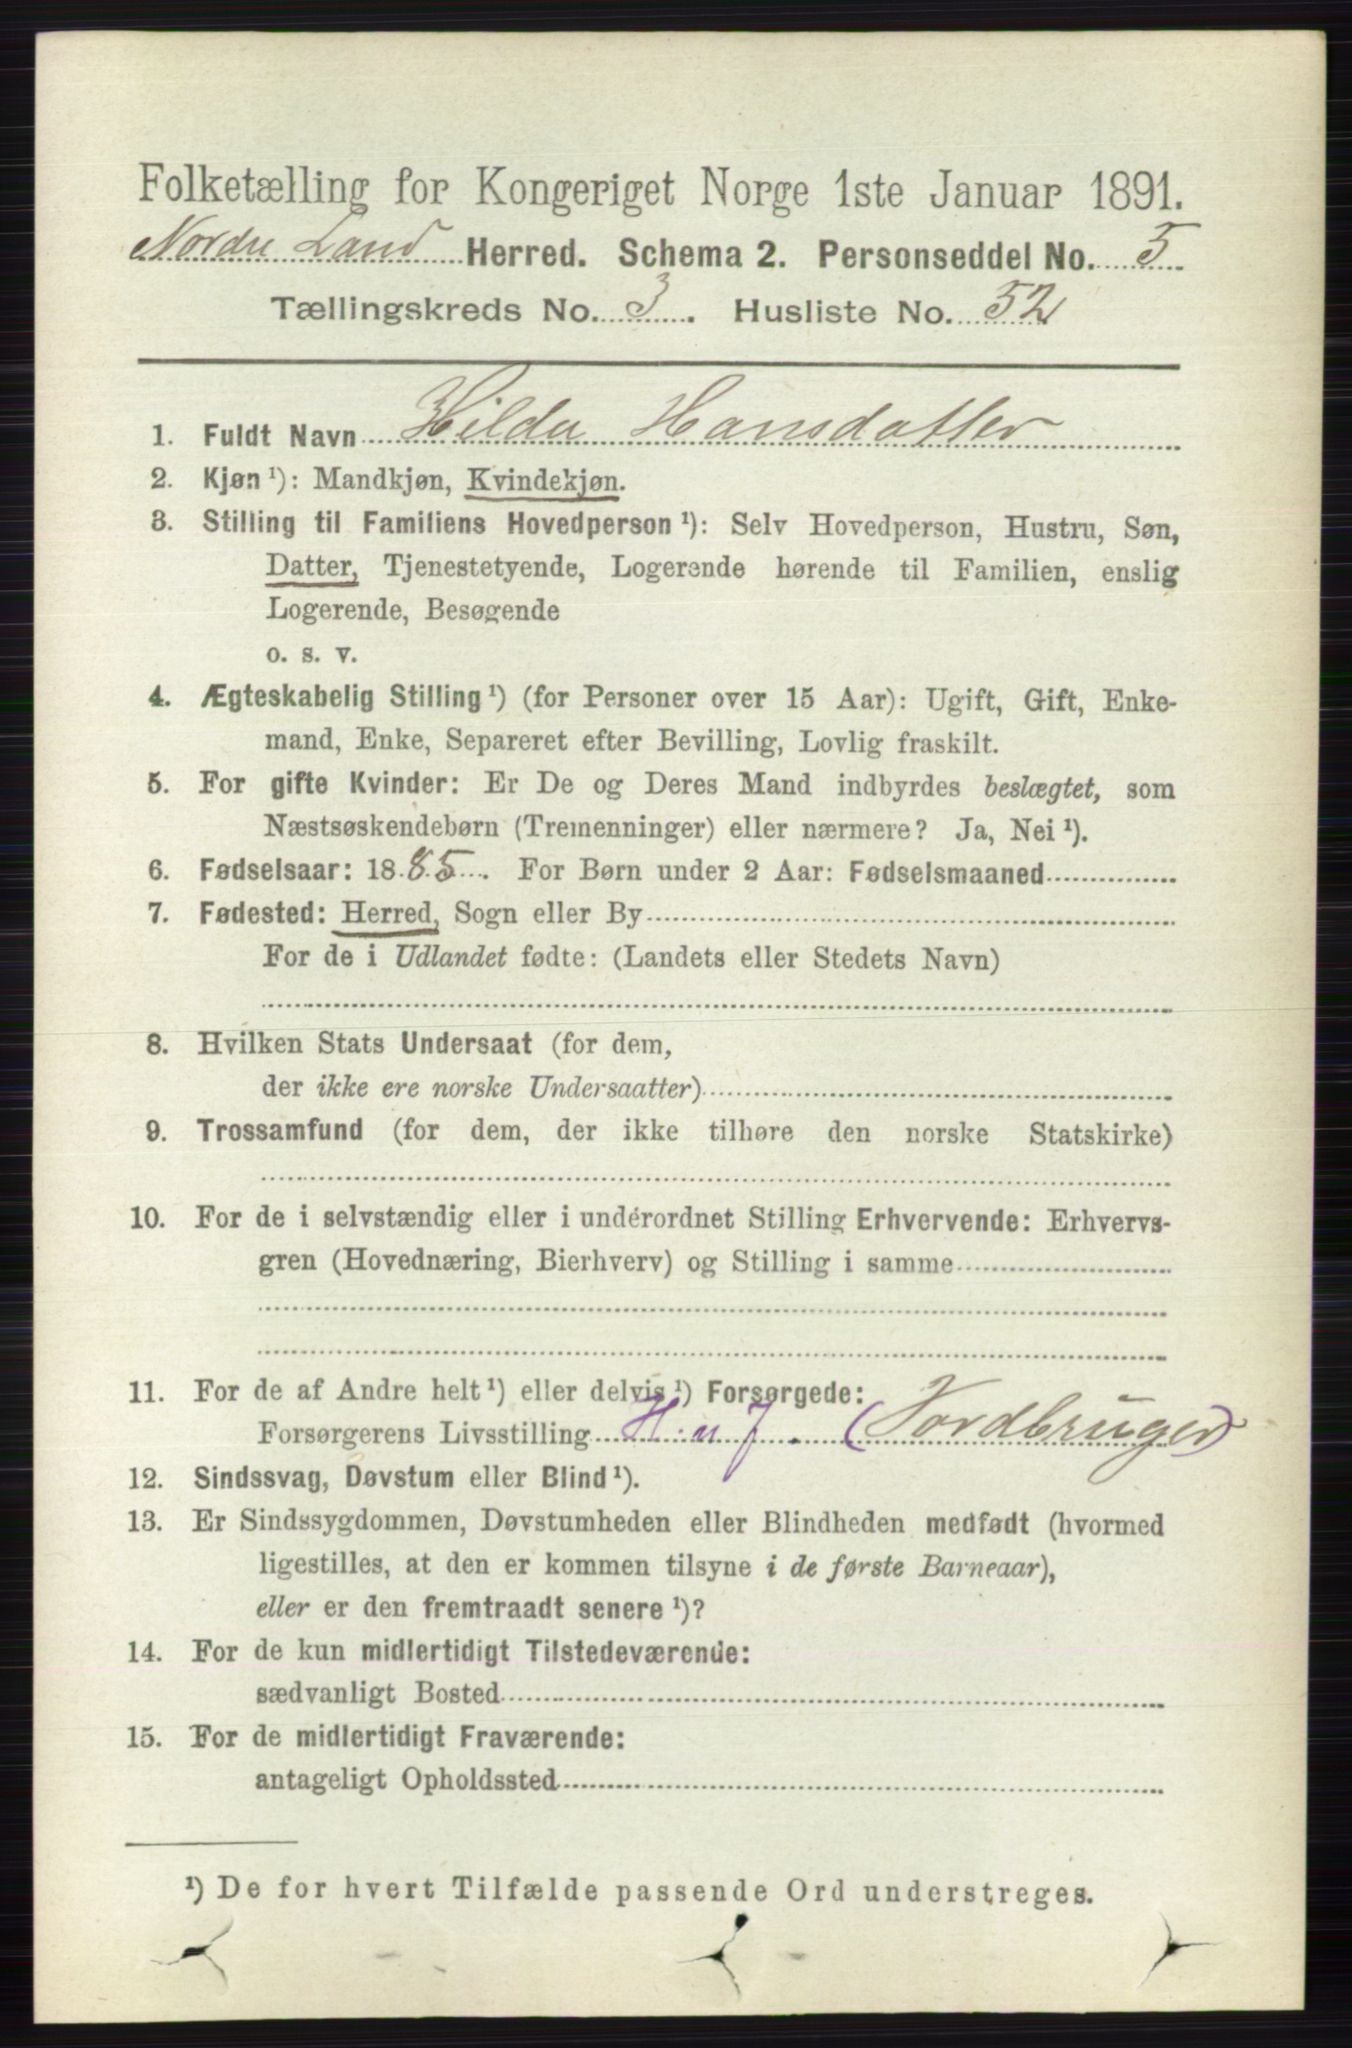 Folketælling for Kongeriget Norge 1ste Januar 1891.
Nordre Land Herred. Schema 2. Personseddel No. 5
Tællingskreds No. 3. Husliste No. 52
1. Fuldt Navn Hilda Hansdatter
2. Kjøn ¹): Mandkjøn, Kvindekjøn.
3. Stilling til Familiens Hovedperson ¹): Selv Hovedperson, Hustru, Søn,
Datter, Tjenestetyende, Logerende hørende til Familien, enslig
Logerende, Besøgende
o. s. v.
4. Ægteskabelig Stilling ¹) (for Personer over 15 Aar): Ugift, Gift, Enke-
mand, Enke, Separeret efter Bevilling, Lovlig fraskilt.
5. For gifte Kvinder: Er De og Deres Mand indbyrdes beslægtet, som
Næstsøskendebørn (Tremenninger) eller nærmere? Ja, Nei ¹).
6. Fødselsaar: 1885. For Børn under 2 Aar: Fødselsmaaned
7. Fødested: Herred, Sogn eller By
For de i Udlandet fødte: (Landets eller Stedets Navn)
8. Hvilken Stats Undersaat (for dem,
der ikke ere norske Undersaatter)
9. Trossamfund (for dem, der ikke tilhøre den norske Statskirke)
10. For de i selvstændig eller i underordnet Stilling Erhvervende: Erhvervs-
gren (Hovednæring, Bierhverv) og Stilling i samme
11. For de af Andre helt ¹) eller delvis ¹) Forsørgede:
Forsørgerens Livsstilling H. u J. (Jordbruger)
12. Sindssvag, Døvstum eller Blind ¹).
13. Er Sindssygdommen, Døvstumheden eller Blindheden medfødt (hvormed
ligestilles, at den er kommen tilsyne i de første Barneaar),
eller er den fremtraadt senere ¹)?
14. For de kun midlertidigt Tilstedeværende:
sædvanligt Bosted
15. For de midlertidigt Fraværende:
antageligt Opholdssted
¹) De for hvert Tilfælde passende Ord understreges.